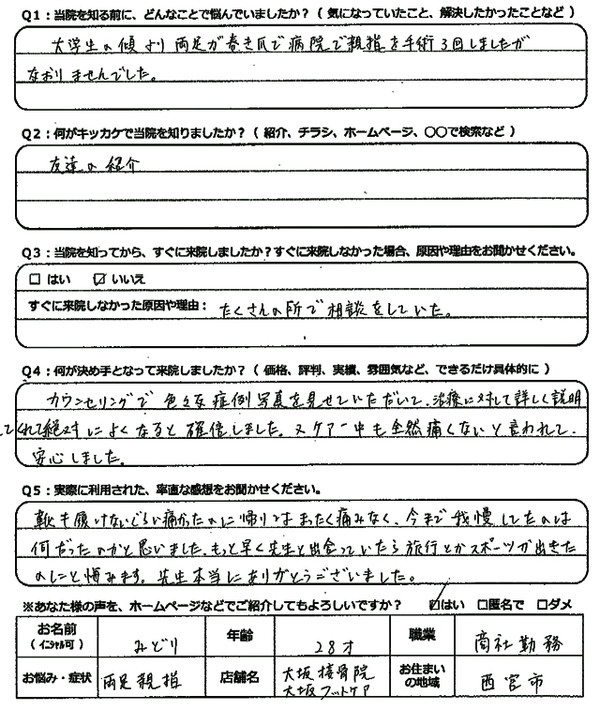 Q1：当院を知る前に、どんなことで悩んでいましたか？（気になっていたこと、解決したかったことなど）
大学生の傾より両足が巻き爪で病院で親指を手術3回しましたが
なおりませんでした。
Q2：何がキッカケで当院を知りましたか？（紹介、チラシ、ホームページ、〇〇で検索など）
友達の紹介
Q3：当院を知ってから、すぐに来院しましたか？すぐに来院しなかった場合、原因や理由をお聞かせください。
□ はい ☑ いいえ
すぐに来院しなかった原因や理由： たくさんの所で相談をしていた。
Q4：何が決め手となって来院しましたか？（価格、評判、実績、雰囲気など、できるだけ具体的に）
カウンセリングで色々な症例写真を見せていただいて、治療に対して詳しく説明
してくれて絶対によくなると確信しました。又ケアー中も全然痛くないと言われて、
安心しました。
Q5：実際に利用された、率直な感想をお聞かせください。
靴も履けないぐらい痛かったのに帰りはまったく痛みなく、今まで我慢してたのは
何だったのかと思いました。もっと早く先生と出会っていたら旅行とかスポーツが出きた
のにと悔みます。先生本当にありがとうございました。
※あなた様の声を、ホームページなどでご紹介してもよろしいですか？ ☑はい □匿名で □ダメ
お名前 みどり 年齢 28才 職業 商社勤務
（イニシャル可）
お悩み・症状 両足親指 店舗名 大坂接骨院 お住まい 西宮市
大坂フットケア の地域